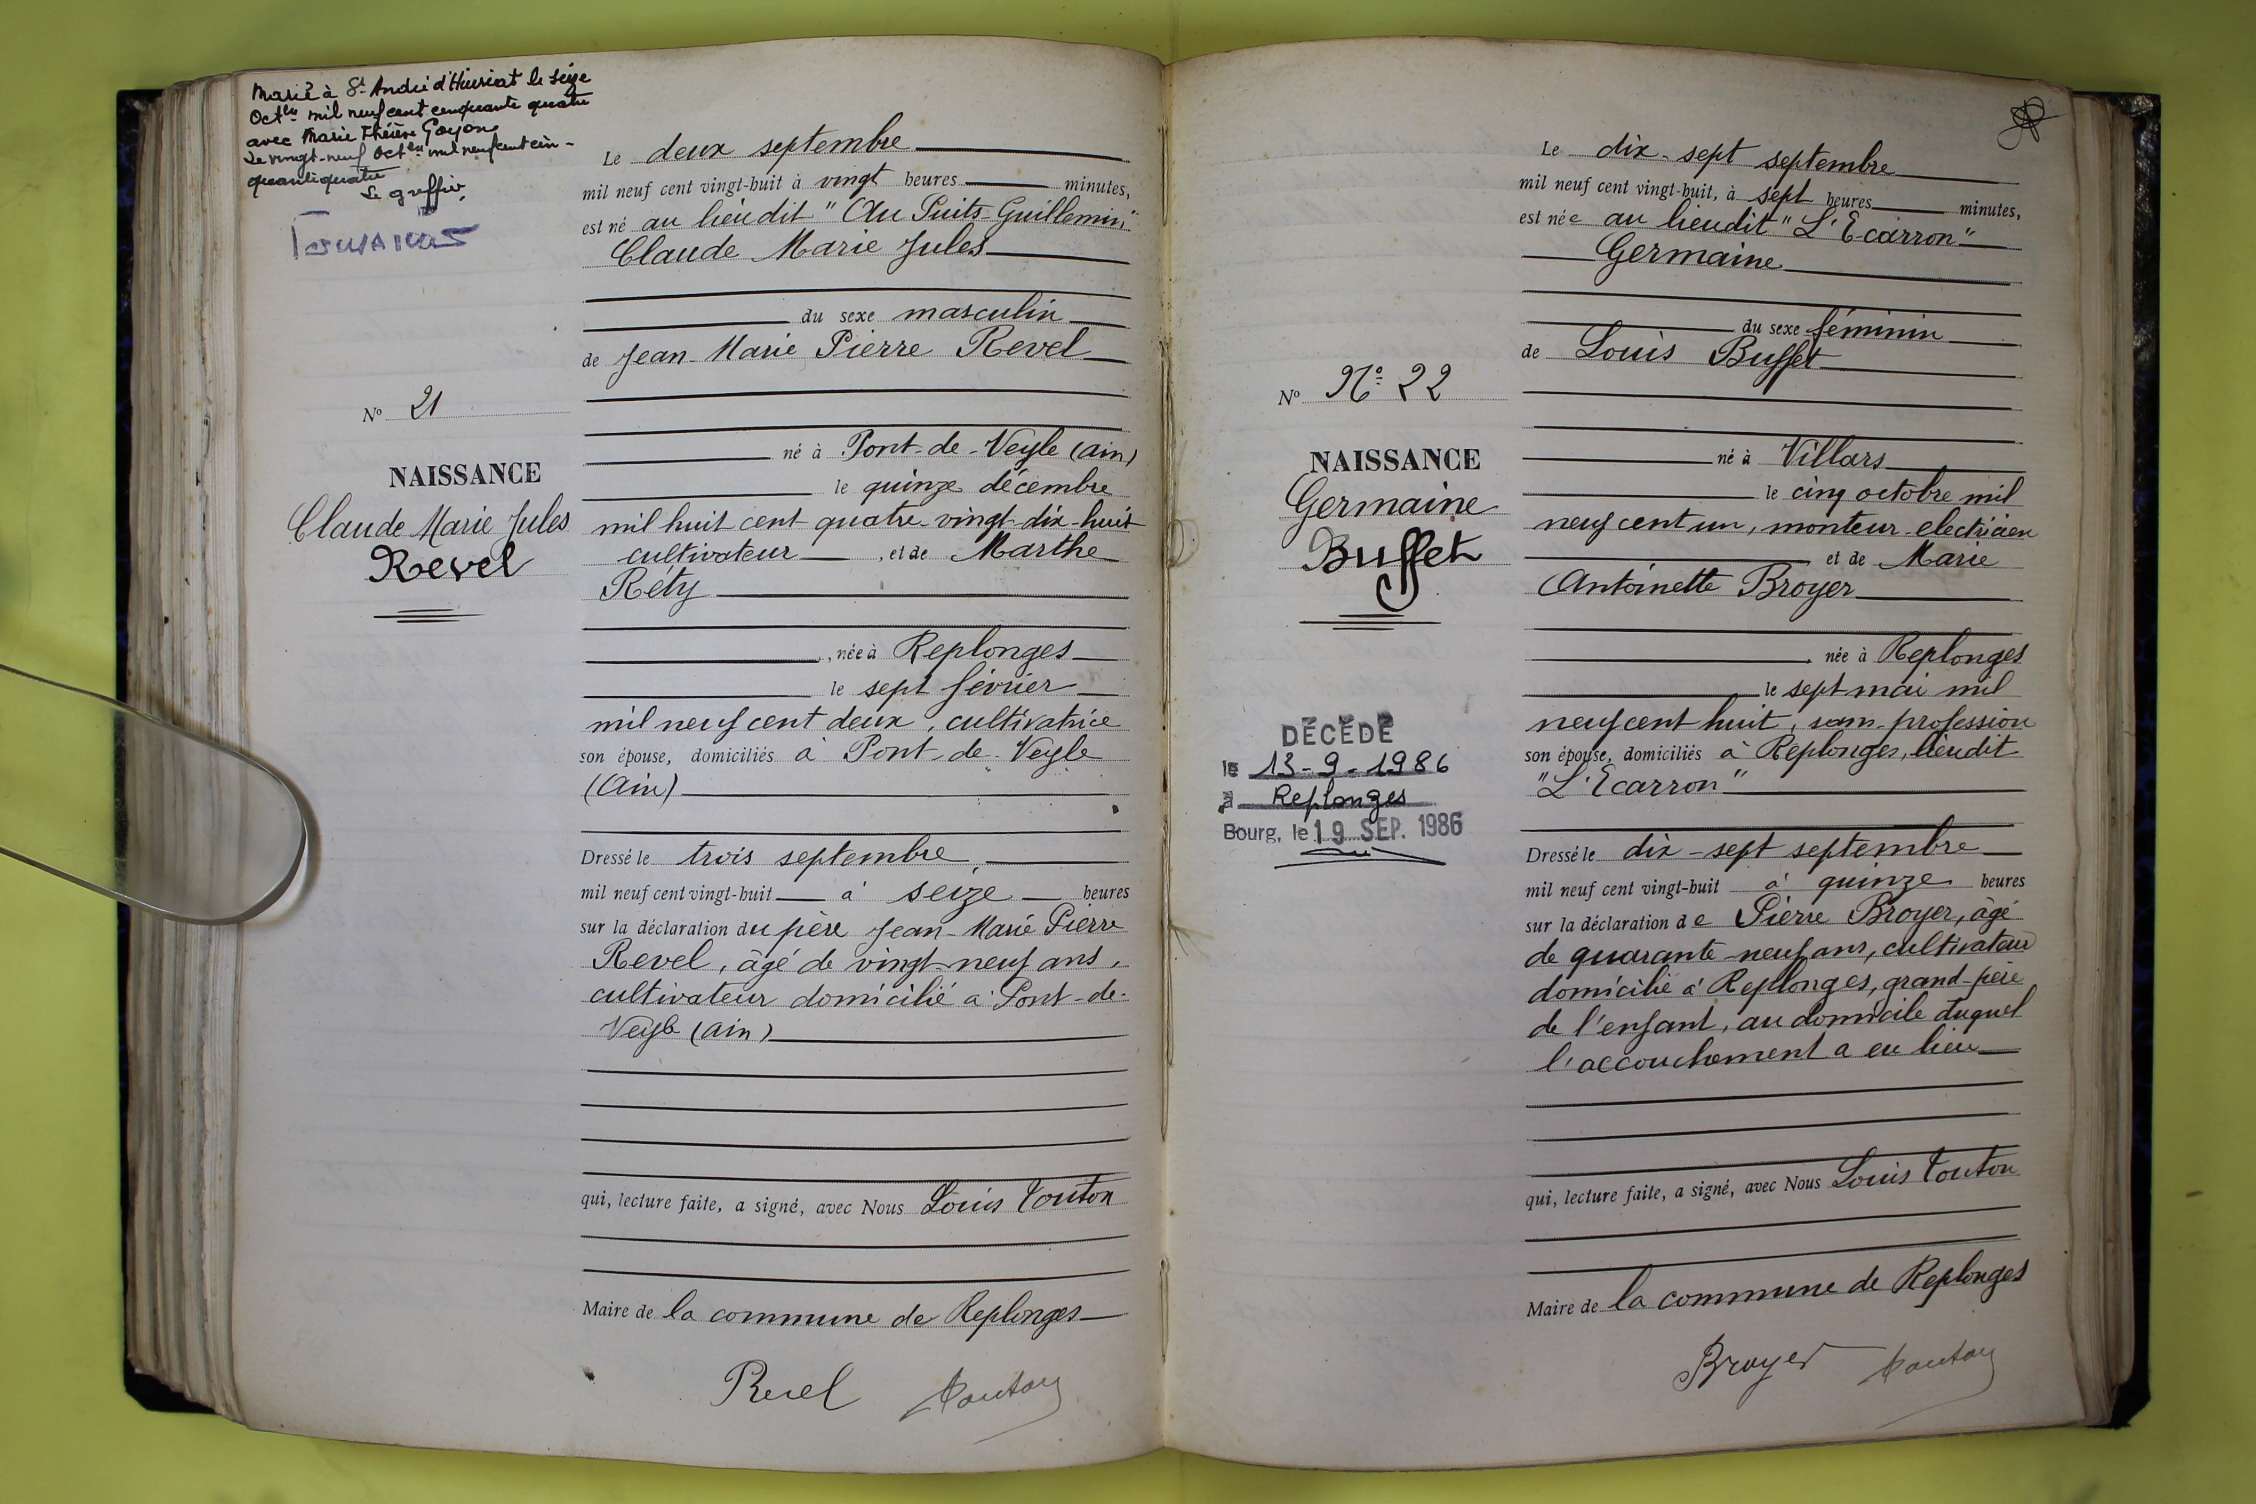 Marié à St André d'Huiriat le seize
Octbre mil neuf cent cinquante quatre
avec Marie Thérèse Goyon
Le vingt-neuf Octbre mil neuf cent cin-
quante quatre
Le greffier,
Le deux septembre
mil neuf cent vingt-huit à vingt heures minutes,
est né au lieudit "Au Puits-Guillemin,"
Claude Marie Jules
du sexe masculin
de Jean-Marie Pierre Revel
né à Pont-de-Veyle (Ain)
le quinze décembre
mil huit cent quatre-vingt-dix-huit
cultivateur , et de Marthe
Réty
, née à Replonges
le sept février
mil neuf cent deux, cultivatrice
son épouse, domiciliés à Pont-de-Veyle
(Ain)
Dressé le trois septembre
mil neuf cent vingt-huit à seize heures
sur la déclaration du père Jean-Marie Pierre
Revel, âgé de vingt-neuf ans,
cultivateur domicilié à Pont-de-
Veyle (Ain)
qui, lecture faite, a signé, avec Nous Louis Touton
Maire de la commune de Replonges
Revel Touton
No 21
NAISSANCE
Claude Marie Jules
Revel
Le dix-sept septembre
mil neuf cent vingt-huit, à sept heures minutes,
est née au lieudit "L'Ecarron"
Germaine
du sexe féminin
de Louis Buffet
né à Villars
le cinq octobre mil
neuf cent un, monteur-electricien
et de Marie
Antoinette Broyer
née à Replonges
le sept mai mil
neuf cent huit, sans profession
son épouse, domiciliés à Replonges, lieudit
"L'Ecarron"
Dressé le dix-sept septembre
mil neuf cent vingt-huit à quinze heures
sur la déclaration de Pierre Broyer, âgé
de quarante-neuf ans, cultivateur
domicilié à Replonges, grand-père
de l'enfant, au domicile duquel
l'accouchement a eu lieu
qui, lecture faite, a signé, avec Nous Louis Touton
Maire de la commune de Replonges
Broyer Touton
No No 22
NAISSANCE
Germaine
Buffet
DÉCÉDÉ
le 13-9-1986
à Replonges
Bourg, le 19 SEP. 1986